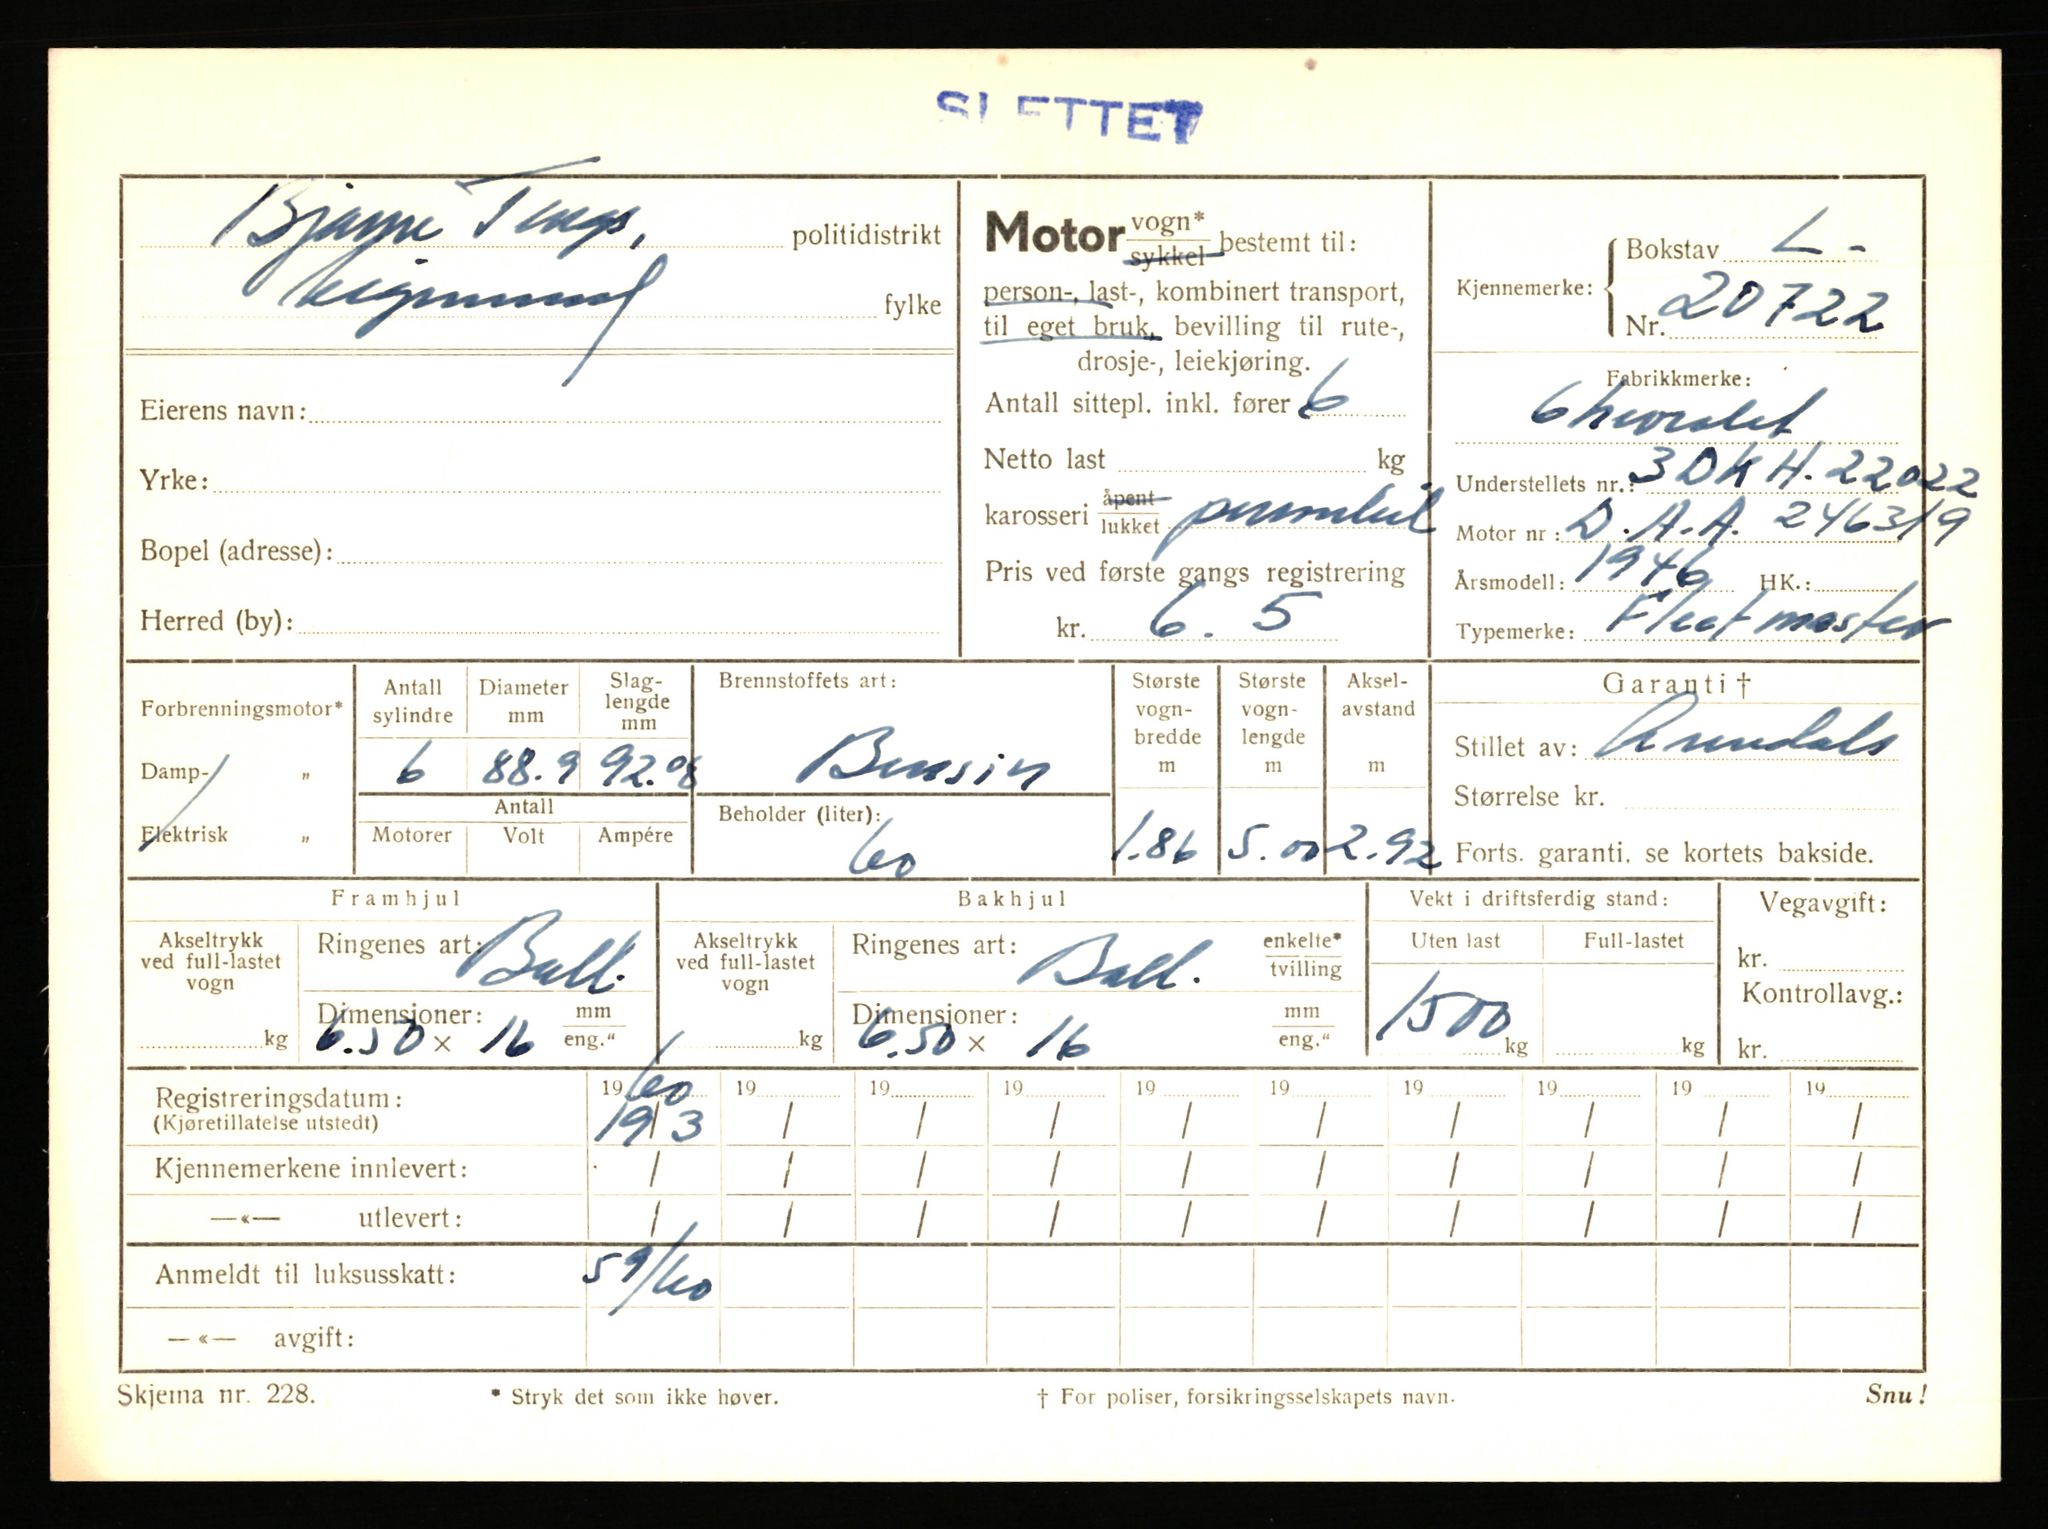 SLETTET
Bjarne Tengs, politidistrikt
fylke
Eierens navn:
Yrke:
Bopel (adresse):
Herred (by):
Motor vogn* sykkel bestemt til:
person-, last-, kombinert transport,
til eget bruk, bevilling til rute-,
drosje-, leiekjøring.
Antall sittepl. inkl. fører 6
Netto last kg
karosseri åpent lukket personbil
Pris ved første gangs registrering
kr. 6. 5
Kjennemerke: Bokstav L -
Nr. 20722
Fabrikkmerke:
Chevrolet
Understellets nr.: 3DKH. 22022
Motor nr: D.A.A. 246319
Årsmodell: 1946 HK.:
Typemerke: Fleetmaster
Forbrenningsmotor*
Damp- „
Elektrisk „
Antall sylindre
Diameter mm
Slag-lengde mm
6 88.9 92.08
Antall
Motorer Volt Ampére
Brennstoffets art:
Bensin
Beholder (liter):
60
Største vogn-bredde m
1.86
Største vogn-lengde m
5.00
Aksel-avstand m
2.92
Garanti †
Stillet av: Arendals
Størrelse kr.
Forts. garanti. se kortets bakside.
Framhjul
Akseltrykk ved full-lastet vogn
kg
Ringenes art: Ball.
Dimensjoner: mm eng."
6.50 × 16
Bakhjul
Akseltrykk ved full-lastet vogn
kg
Ringenes art: Ball. enkelte* tvilling
Dimensjoner: mm eng."
6.50 × 16
Vekt i driftsferdig stand:
Uten last Full-lastet
1500 kg kg
Vegavgift:
kr.
Kontrollavg.:
kr.
Registreringsdatum: 1960 19 19 19 19 19 19 19 19 19
(Kjøretillatelse utstedt) 19/3 / / / / / / / / /
Kjennemerkene innlevert: / / / / / / / / / /
—«— utlevert: / / / / / / / / / /
Anmeldt til luksusskatt: 59/60
—«— avgift:
Skjema nr. 228. * Stryk det som ikke høver. † For poliser, forsikringsselskapets navn. Snu!